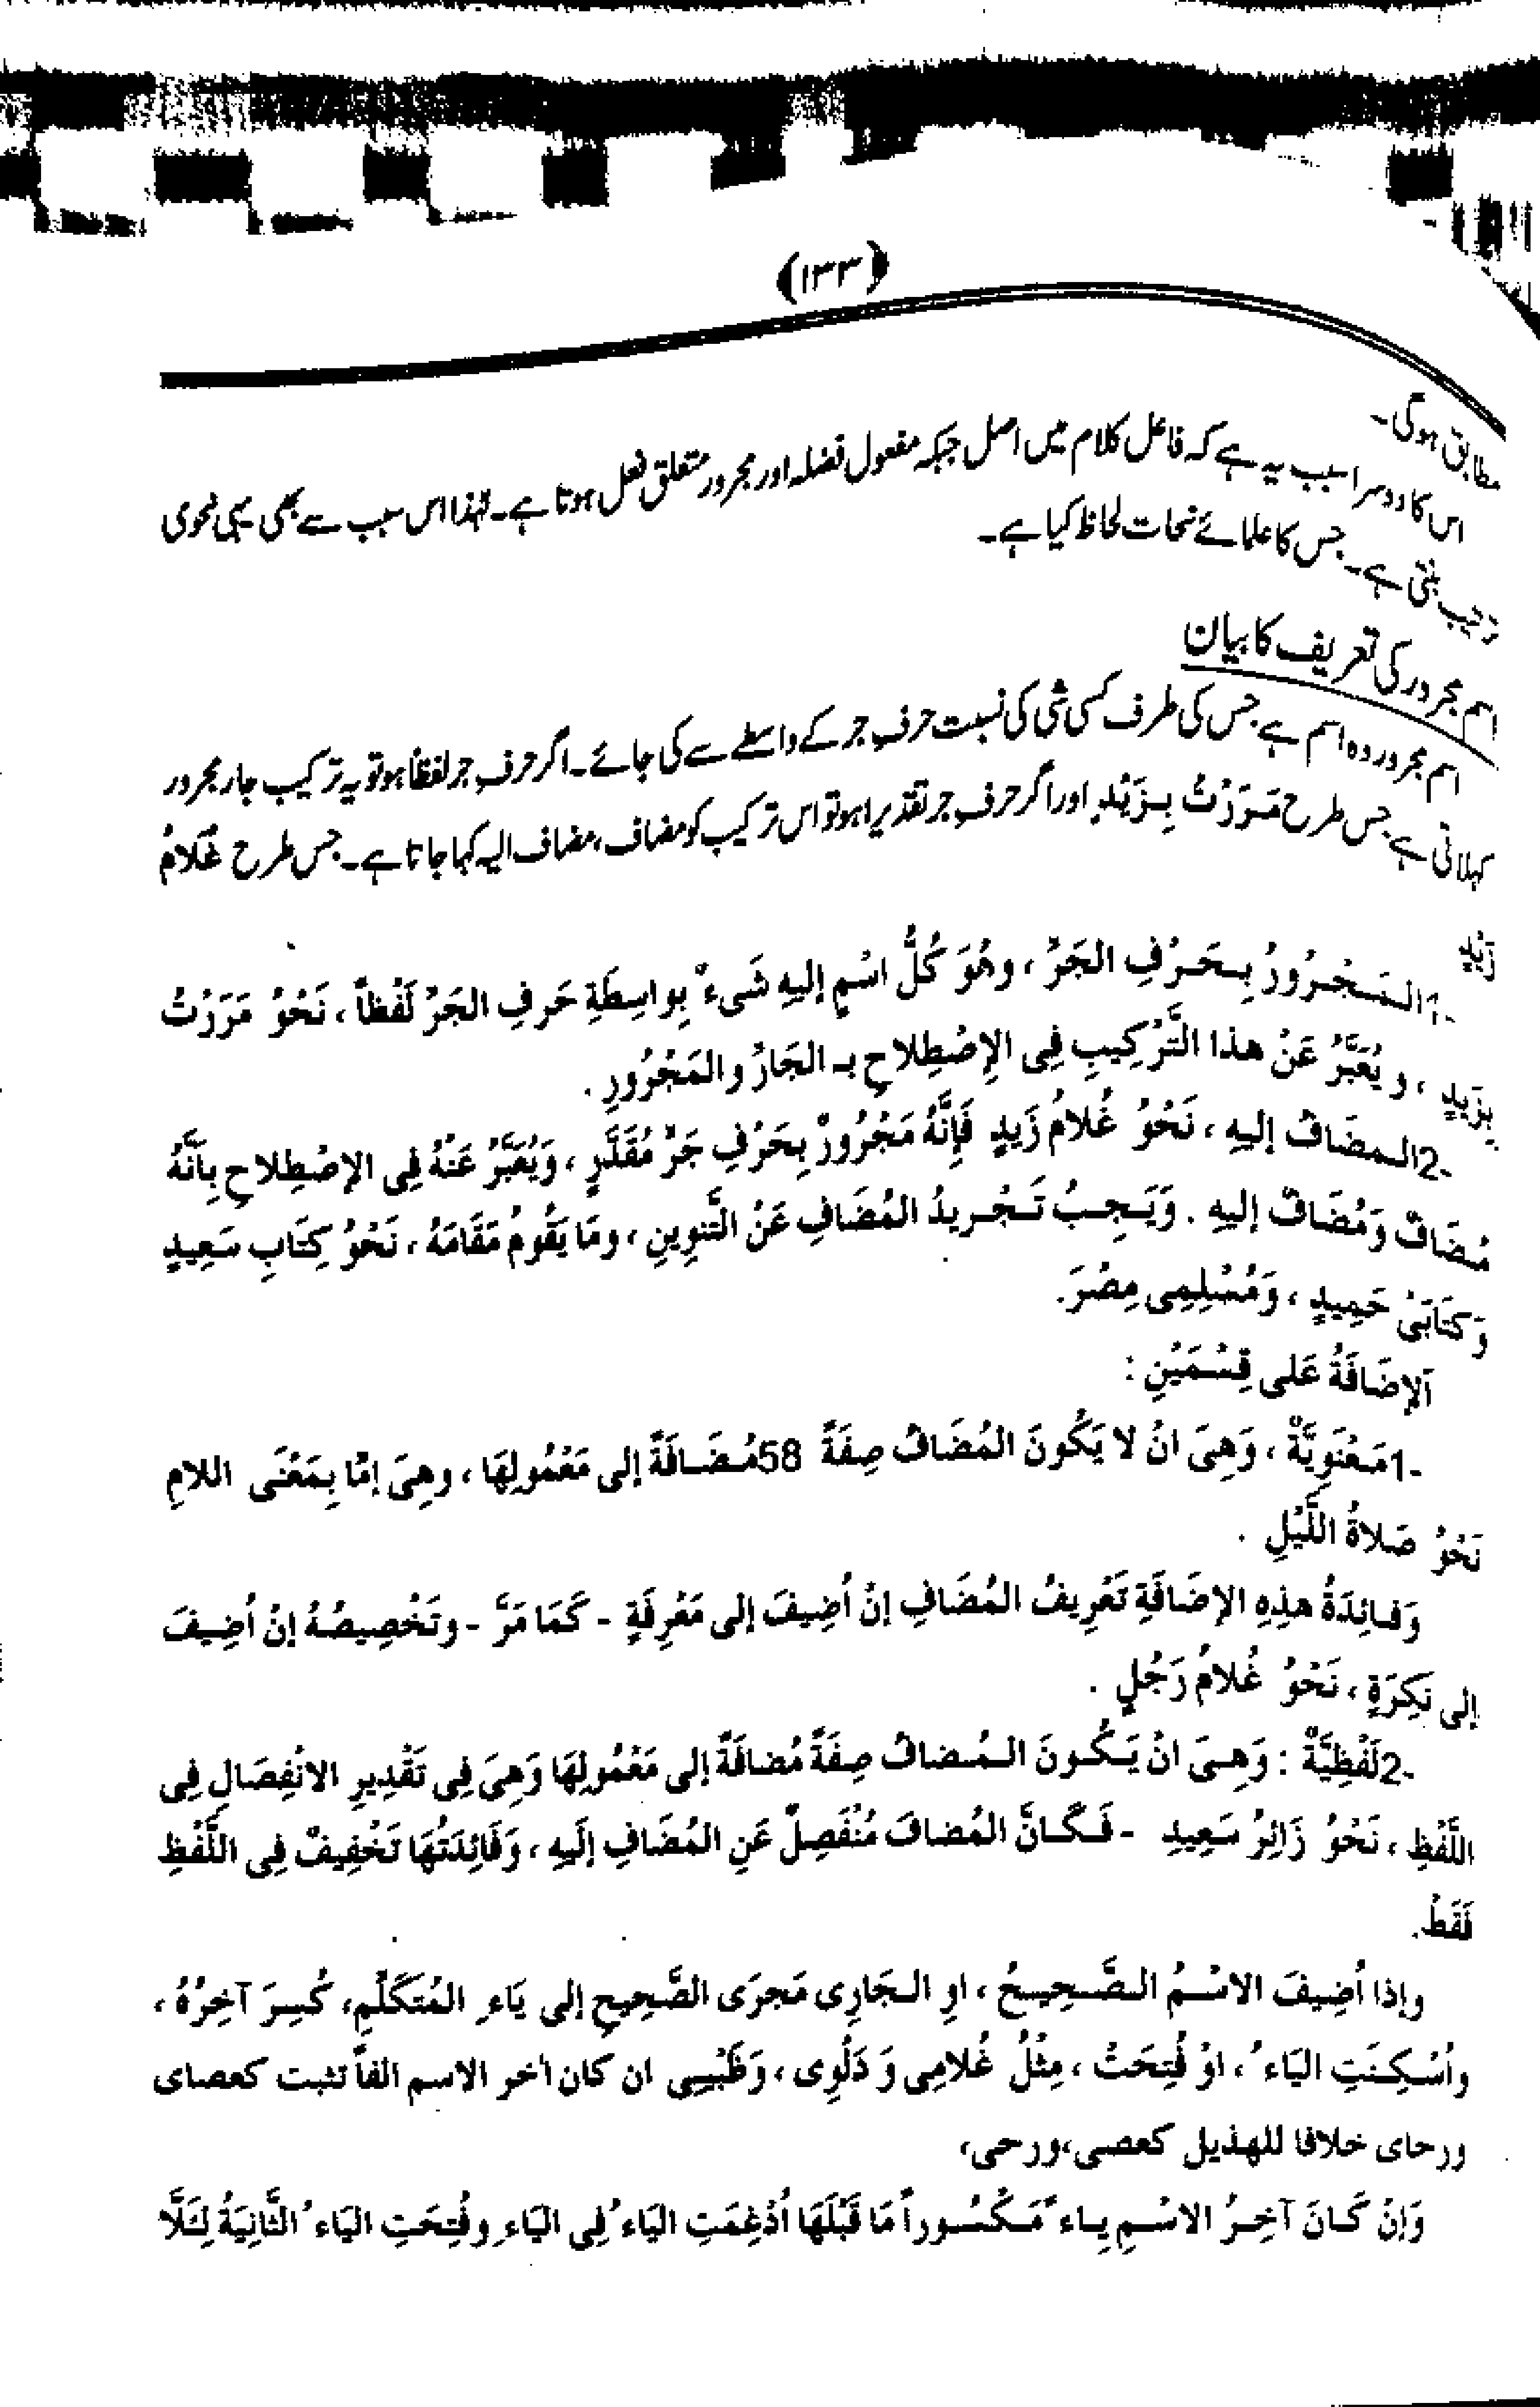 ﴿۱۳۳﴾
مطابق ہوگی۔
اس کا دوسرا سبب یہ ہے کہ فاعل کلام میں اصل جبکہ مفعول فضلہ اور مجرور متعلق فعل ہوتا ہے۔ لہٰذا اس سبب سے بھی یہی نحوی
ترتیب بنتی ہے۔ جس کا علمائے نحات لحاظ کیا ہے۔
اسم مجرور کی تعریف کا بیان
اسم مجرور وہ اسم ہے جس کی طرف کسی شئی کی نسبت حرفِ جر کے واسطے سے کی جائے۔ اگر حرفِ جر لفظاً ہو تو یہ ترکیب جار مجرور
کہلاتی ہے جس طرح مَرَرْتُ بِزَیْدٍ اور اگر حرفِ جر تقدیرا ہو تو اس ترکیب کو مضاف، مضاف الیہ کہا جاتا ہے۔ جس طرح غُلَامُ
زَیْدٍ
-1المَجْرُورُ بِحَرْفِ الجَرِّ ، وهُوَ كُلُّ اسْمٍ إليهِ شَىءٌ بِواسِطَةِ حَرفِ الجَرِّ لَفْظاً ، نَحْوُ مَرَرْتُ
بِزَيدٍ ، و يُعَبَّرُ عَنْ هذا التَّرْكِيبِ فِى الإصْطِلاحِ بـ الجَارِّ والمَجْرُورِ .
-2المضَافُ إليهِ ، نَحْوُ غُلامُ زَيدٍ فَإنَّهُ مَجْرُورٌ بِحَرْفِ جَرٍّ مُقَدَّرٍ ، وَيُعَبَّرُ عَنْهُ فِى الإصْطِلاحِ بِاَنَّهُ
مُضَافٌ وَمُضَافٌ إليهِ . وَيَجِبُ تَجْرِيدُ المُضَافِ عَنْ التَّنوِينِ ، ومَا يَقُومُ مَقَامَهُ ، نَحْوُ كِتَابِ سَعِيدٍ
وَكِتَابَىْ حَمِيدٍ ، وَمُسْلِمِى مِصْرَ.
اَلإضَافَةُ عَلى قِسْمَيْنِ :
-1مَعْنَوِيَّةٌ ، وَهِىَ انْ لا يَكُونَ المُضَافُ صِفَةً 58مُضَافَةً إلى مَعْمُولِهَا ، وهِىَ إمّا بِمَعْنَى اللامِ
نَحْوُ صَلاةُ اللَّيْلِ .
وَفائِدَةُ هذِهِ الإضَافَةِ تَعْرِيفُ المُضَافِ إنْ اُضِيفَ إلى مَعْرِفَةٍ - كَمَا مَرَّ - وتَخْصِيصُهُ إنْ اُضِيفَ
إلى نَكِرَةٍ ، نَحْوُ غُلامُ رَجُلٍ .
-2لَفْظِيَّةٌ : وَهِىَ انْ يَكُونَ المُضافُ صِفَةً مُضافَةً إلى مَعْمُولِهَا وَهِىَ فِى تَقْدِيرِ الانْفِصَالِ فِى
اللَّفْظِ ، نَحْوُ زَائِرُ سَعِيدِ - فَكَانَّ المُضافَ مُنْفَصِلٌ عَنِ المُضَافِ إلَيهِ ، وَفَائِدَتُهَا تَخْفِيفٌ فِى اللَّفْظِ
فَقَطْ.
وإذا اُضِيفَ الاسْمُ الصَّحِيحُ ، اوِ الجَارِى مَجرَى الصَّحِيحِ إلى يَاءِ المُتَكَلِّمِ، كُسِرَ آخِرُهُ ،
واُسْكِنَتِ اليَاءُ ، اوْ فُتِحَتْ ، مِثْلُ غُلامِى وَ دَلْوِى ، وَظَبْيِى ان كان اخر الاسم الفاً تثبت كعصاى
ورحاى خلافا للهذيل كعصى،ورحى،
وَإنْ كَانَ آخِرُ الاسْمِ ياءً مَكْسُوراً مَا قَبْلَهَا اُدْغِمَتِ اليَاءُ فِى اليَاءِ وفُتِحَتِ اليَاءُ الثَّانِيَةُ لِئَلَّا